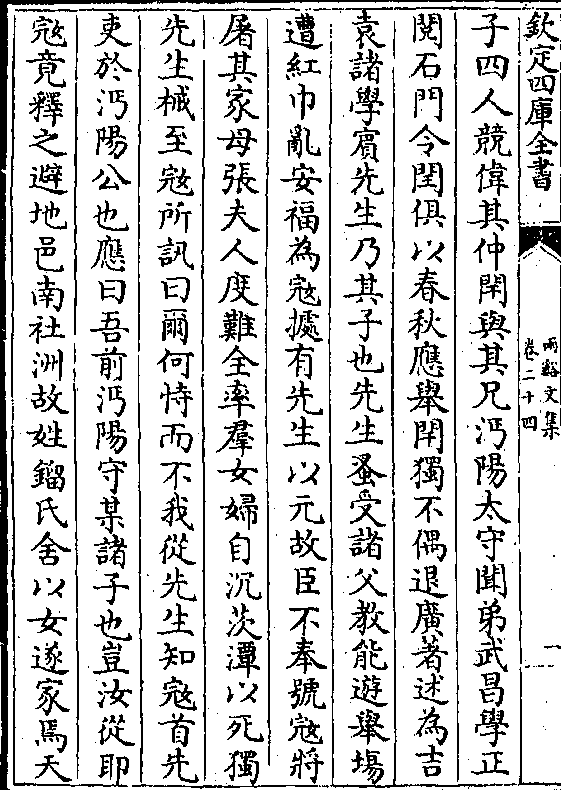 欽定四庫全書
兩谿文集
卷二十四
一
子四人競偉其仲閑與其兄沔陽太守聞弟武昌學正
閱石門令閏俱以春秋應舉閑獨不偶退廣著述為吉
袁諸學賓先生乃其子也先生蚤受諸父教能遊舉塲
遭紅巾亂安福為宼㨿有先生以元故臣不奉號宼將
屠其家母張夫人度難全率羣女婦自沉茨潭以死獨
先生械至宼所訊曰爾何恃而不我從先生知宼首先
吏於沔陽公也應曰吾前沔陽守某諸子也豈汝從即
宼竟釋之避地邑南社洲故姓鎦氏舍以女遂家焉天